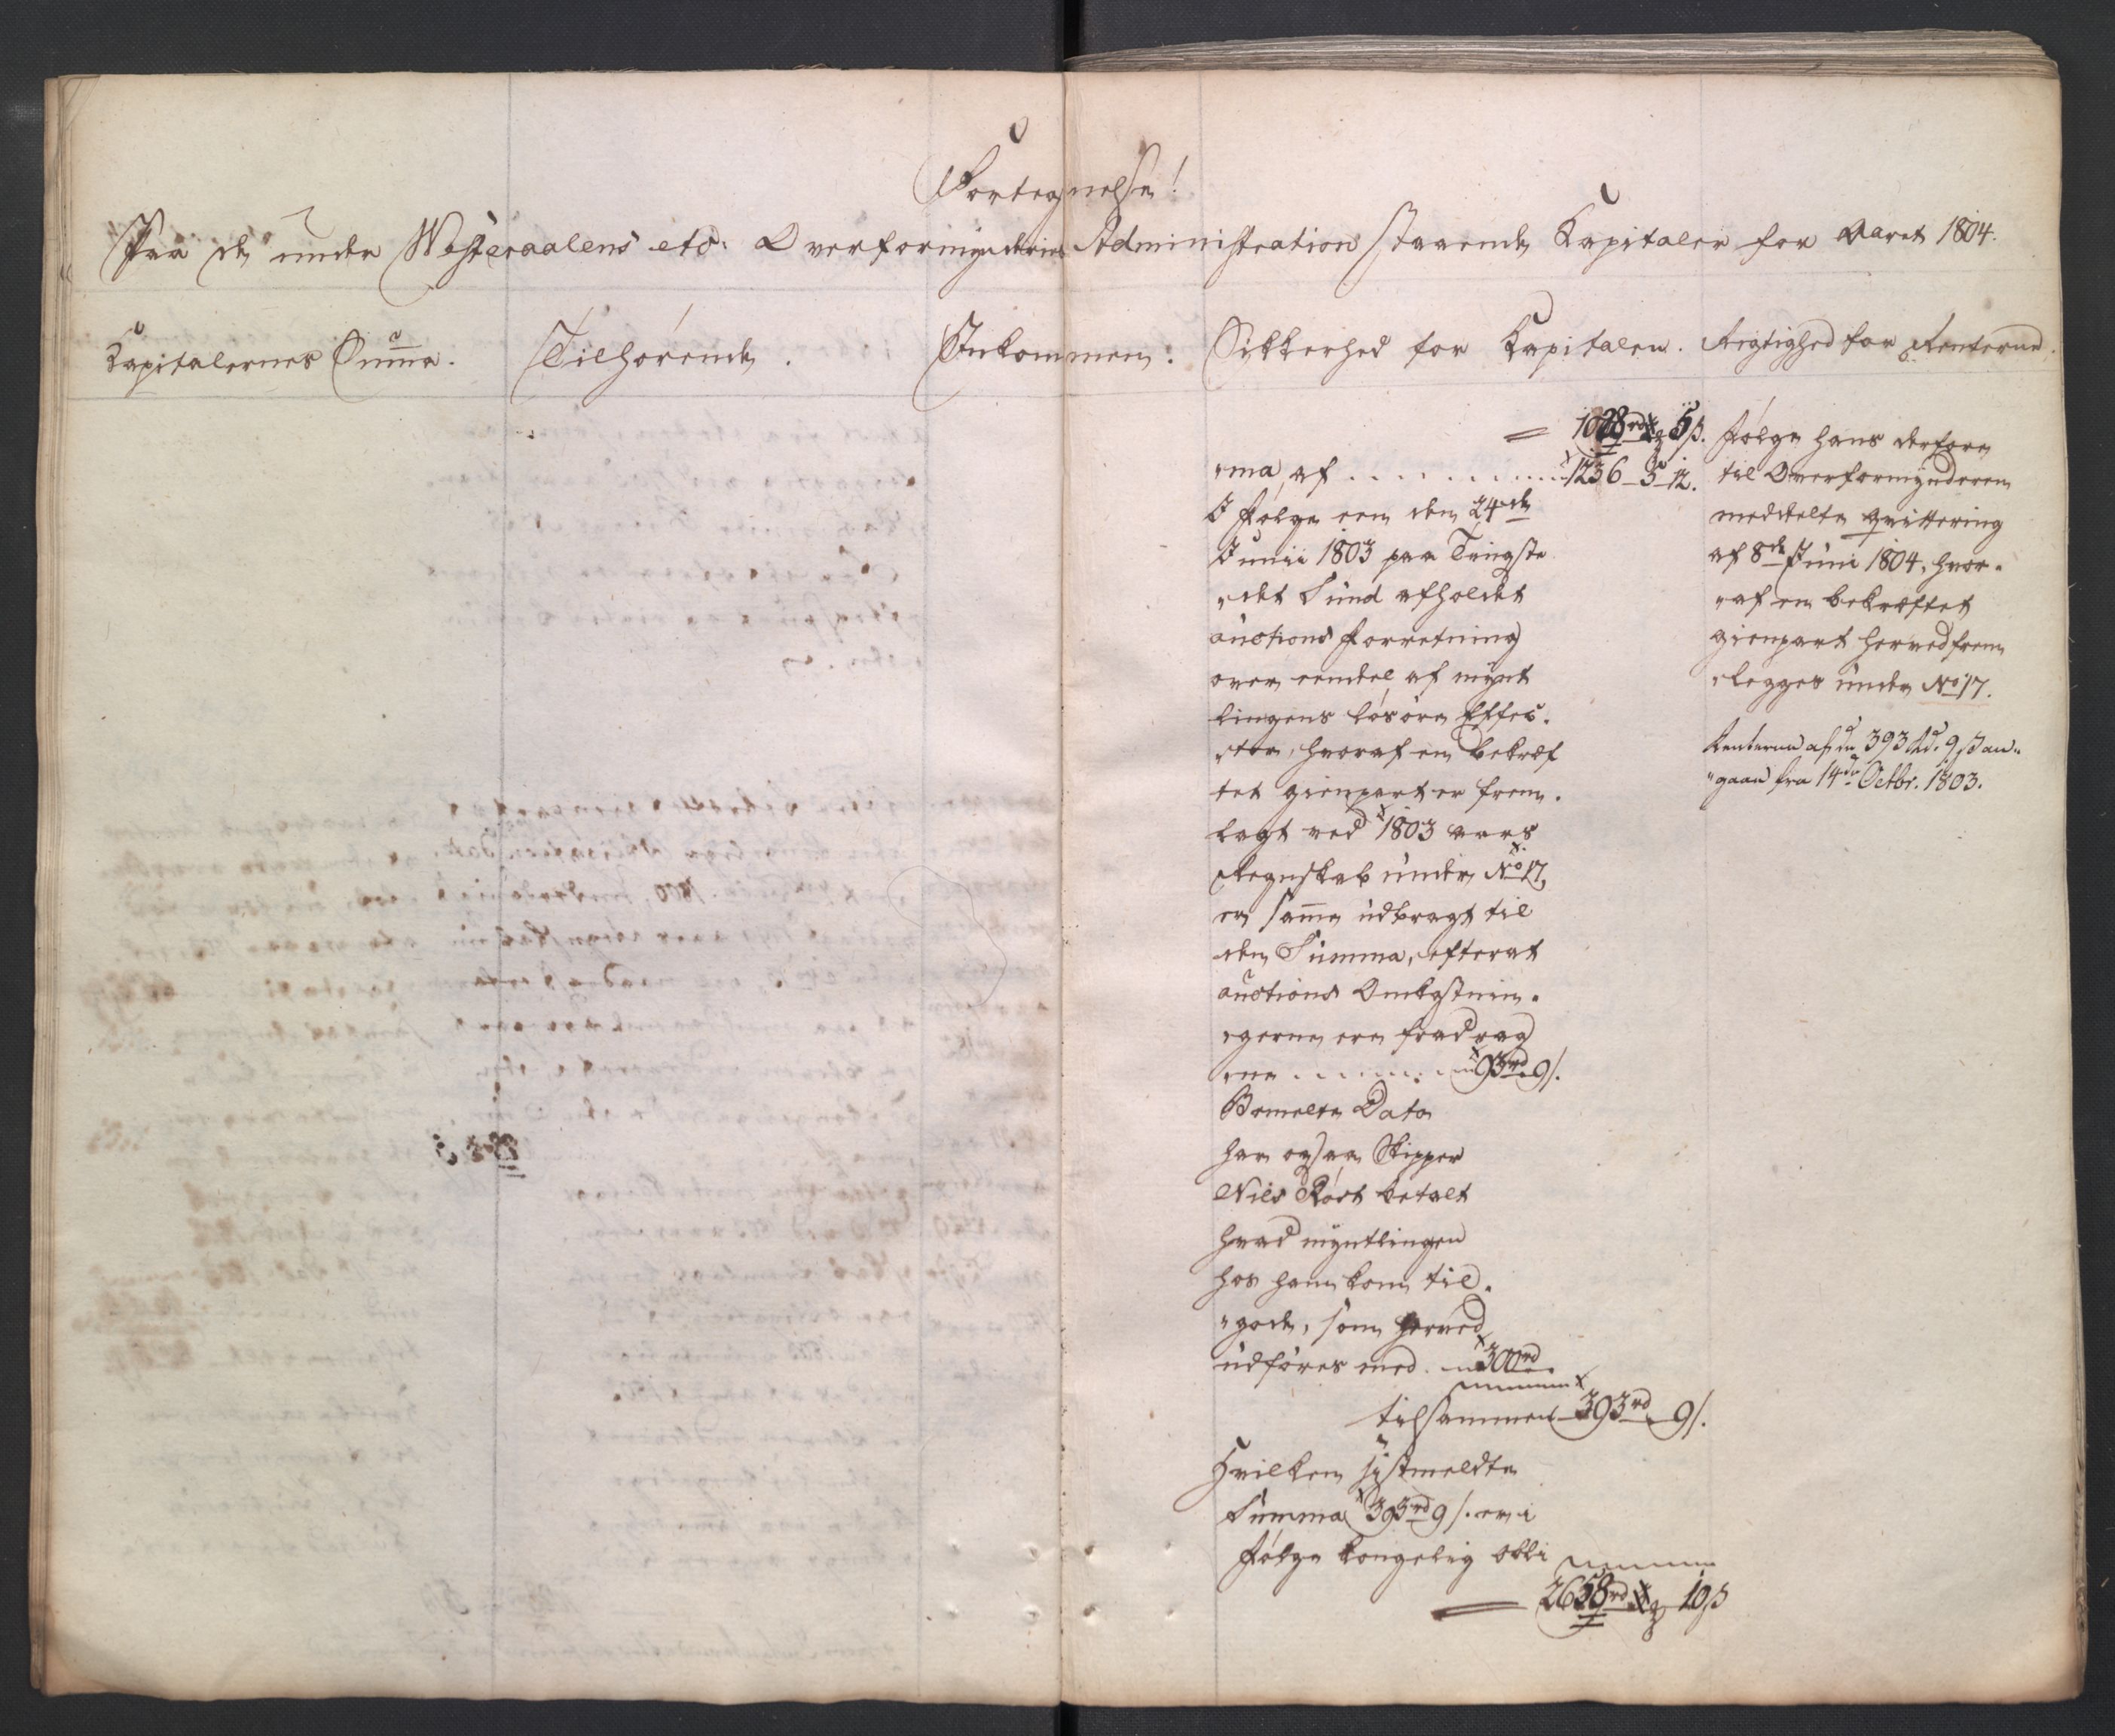 Fortegnelse!
Paa de under Westeraalens etc: Overformynderies Administration staaende Kapitaler for Aaret 1804.
Kapitalernes Summa.
Tilhørende.
Inkommen:
Sikkerhed for Kapitalen.
Rigtighed for Renterne.
= 1028 rd 5 ß.
"ma, af . . . . . . . . . . . 1236 - 3 - 12.
I følge een den 24de
Junii 1803 paa Tingste
"det Sund afholdet
auctions Forretning
over eendel af mynt
lingens løsøre Effec-
"ter, hvoraf en bekræf
tet gienpart er frem-
lagt ved 1803 aars
Regnskab under No 17,
er samme udbragt til
den Summa, efterat
auctions Omkostnin-
"gerne ere fradrag
"ne . . . . . . . 93 rd 9 ß.
Bemelte Dato
har ogsaa Skipper
Niels Røst betalt
hvad myntlingen
hos ham kom til-
"gode, som herved
udføres med . 300 rd
tilsammen 393 rd 9 ß.
Hvilken sistmeldte
Summa 393 rd 9 ß. er i
følge kongelig obli
= 2658 rd 10 ß
følge hans derfore
til Overformynderen
meddelte qvittering
af 8de Juni 1804, hvor-
"af en bekræftet
gienpart herved frem
"legges under No 17.
Renterne af de 393 Rd. 9 ß an-
"gaar fra 14de Octbr. 1803.